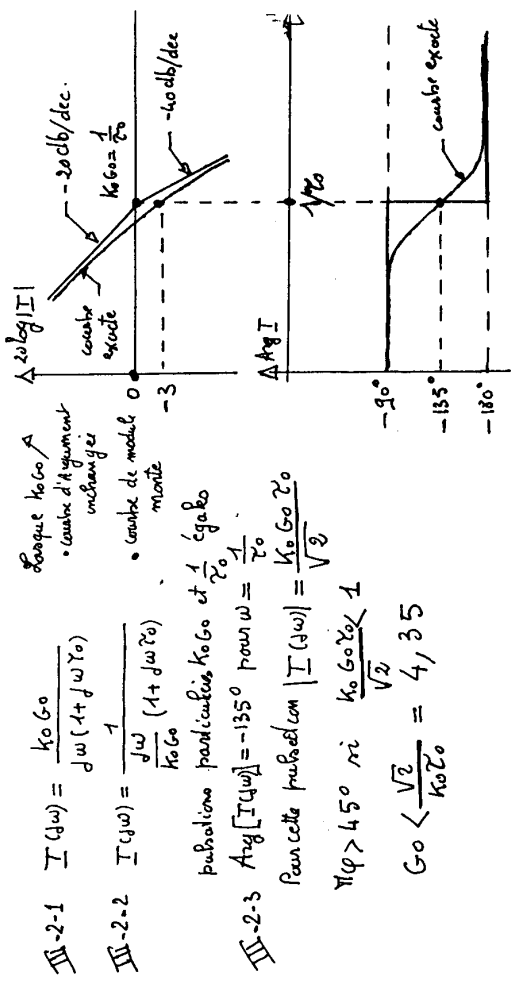 III-2-1 I(jω) = K₀G₀ / jω(1+jωτ₀)
III-2-2 I(jω) = 1 / (jω/K₀G₀ (1+jωτ₀))
pulsations particulières K₀G₀ et 1/τ₀ égales
III-2-3 Arg[I(jω)] = -135° pour ω = 1/τ₀
Pour cette pulsation |I(jω)| = K₀G₀τ₀/√2
Mφ > 45° si K₀G₀τ₀/√2 < 1
G₀ < √2/K₀τ₀ = 4,35
Lorsque K₀G₀ ↗
• courbe d'Argument
inchangée
• courbe de module
monte
20log|I|
-20db/dec.
K₀G₀ = 1/τ₀
-40db/dec
courbe
exacte
0
-3
Arg I
1/τ₀
courbe exacte
-90°
-135°
-180°